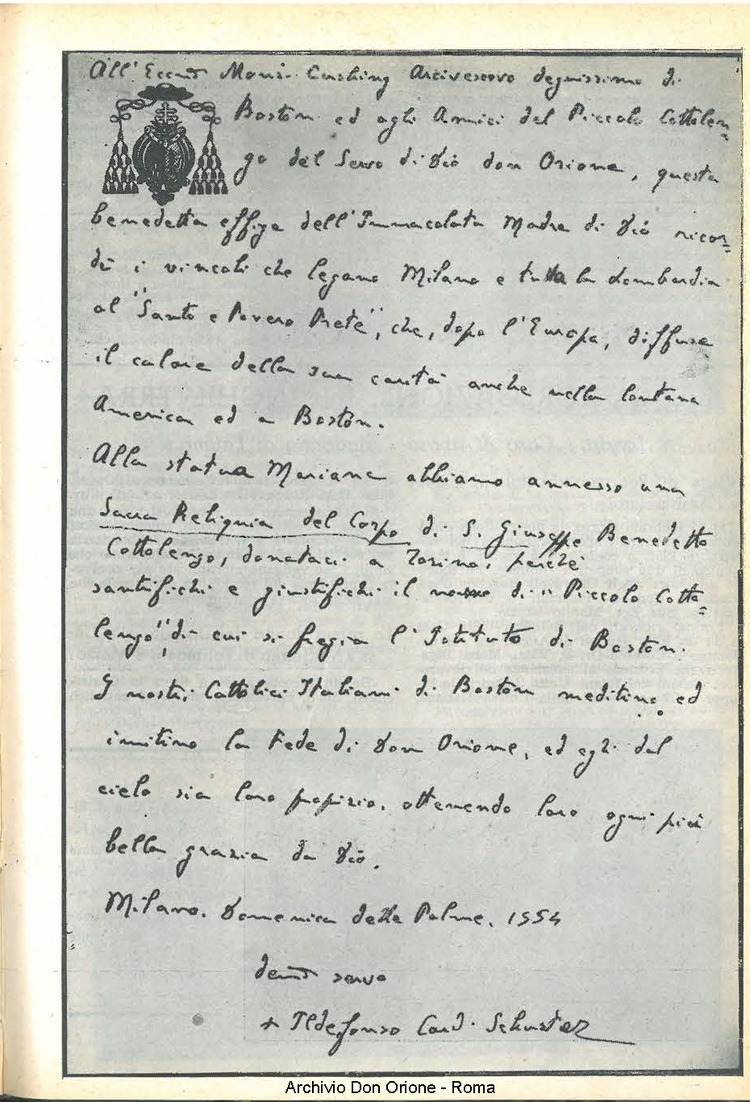 All'Eccmo Monsr. Cushing Arcivescovo degnissimo di
Boston ed agli Amici del Piccolo Cottolen=
go del Servo di Dio don Orione, questa
benedetta effige dell'Immacolata Madre di Dio ricor=
di i vincoli che legano Milano e tutta la Lombardia
al "Santo e Povero Prete", che, dopo l'Europa, diffuse
il calore della sua carità anche nella lontana
America ed a Boston.
Alla statua Mariana abbiamo annesso una
Sacra Reliquia del Corpo di S. Giuseppe Benedetto
Cottolengo, donataci a Torino, perché
santifichi e giustifichi il nome di "Piccolo Cotto=
lengo", di cui si fregia l'Istituto di Boston.
I nostri Cattolici Italiani di Boston meditino ed
imitino la Fede di Don Orione, ed egli dal
cielo sia loro propizio, ottenendo loro ogni più
bella grazia da Dio.
Milano. Domenica delle Palme. 1954
devmo servo
+ Ildefonso Card. Schuster
Archivio Don Orione - Roma